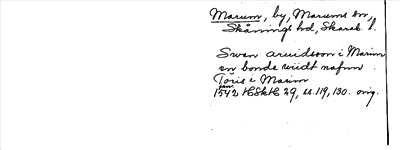 Marum, by, Marums sn,
Skånings hd, Skarab. l.
Swen arvidsson i Marim
en bonde widt nafnn
Töris i Marim
1542 HSkH 29, ss. 119, 130. orig.